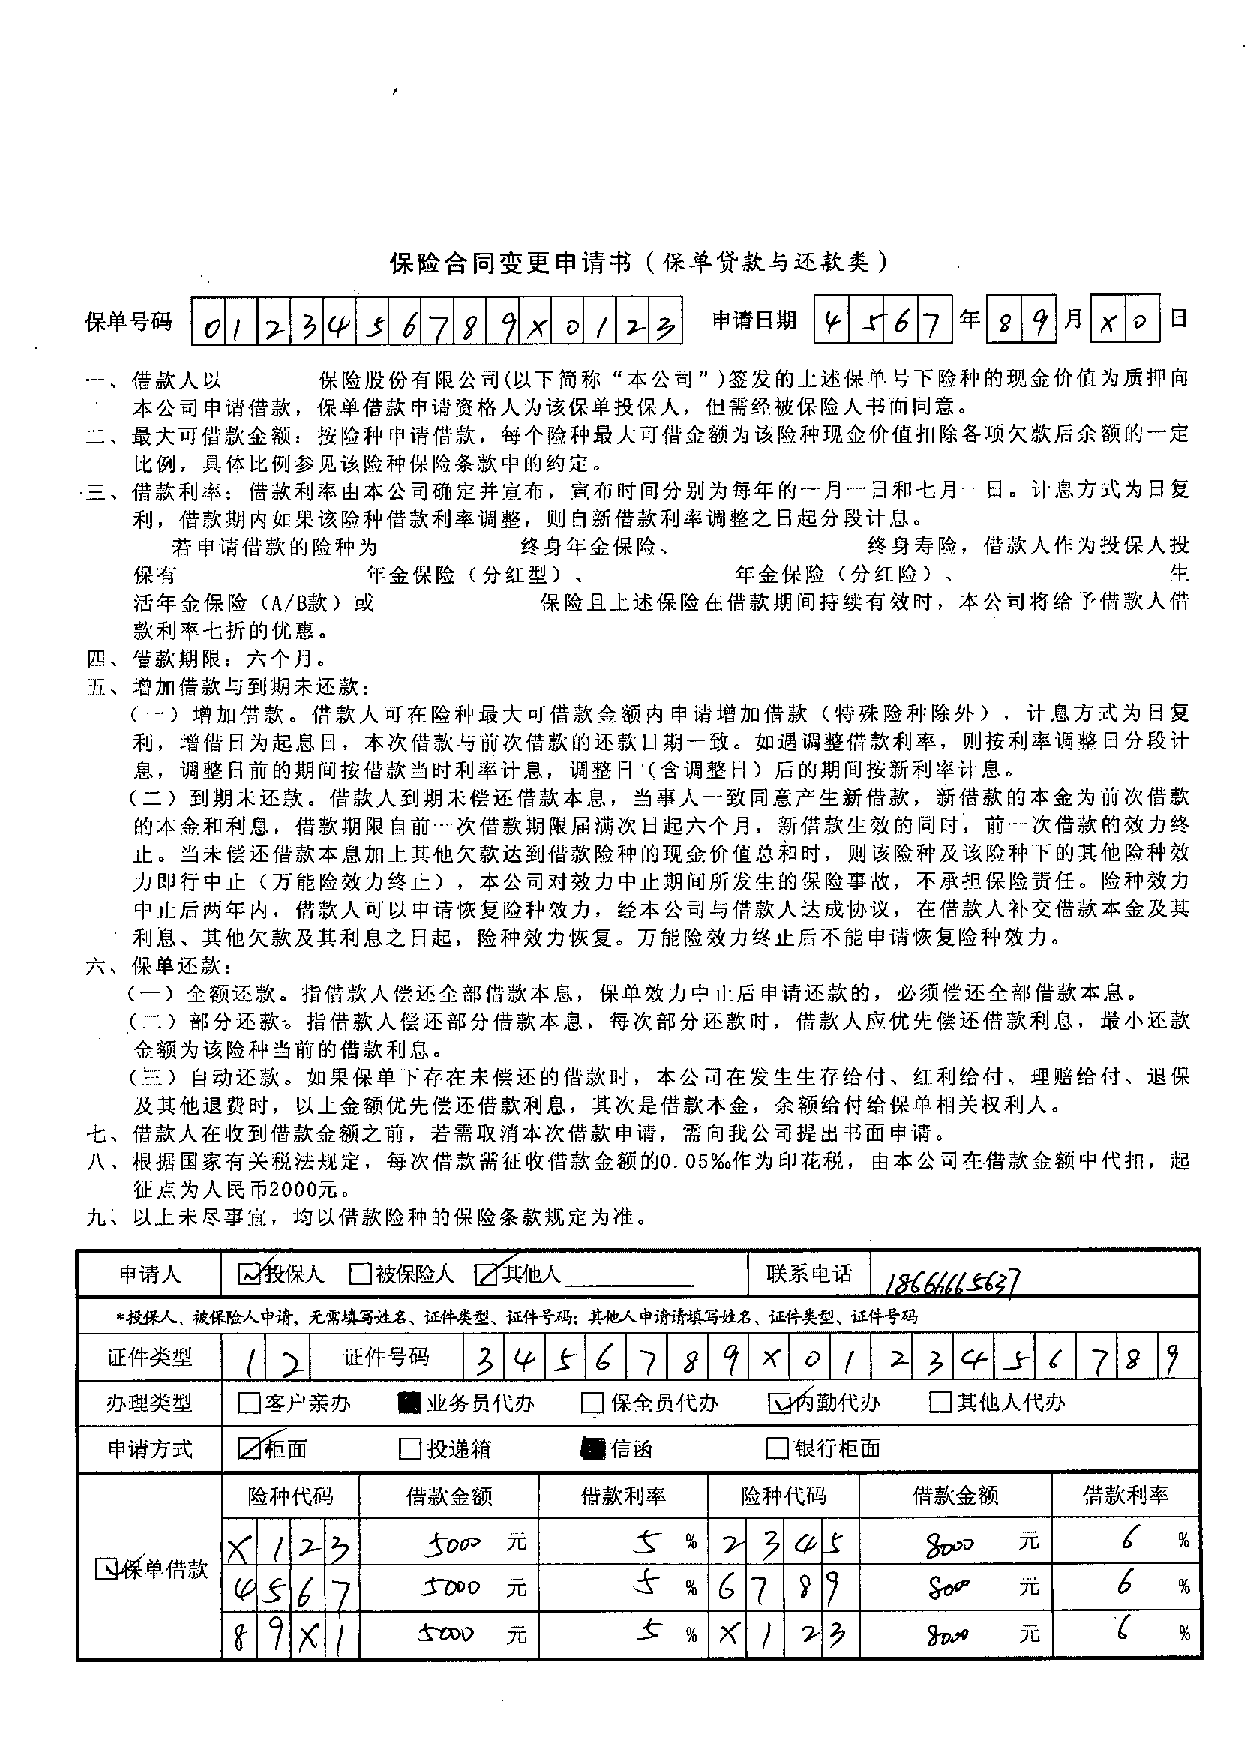 保险合同变更申请书（保单贷款与还款类）
保单号码 0123456789X0123 申请日期 4567年89月X0日
一、借款人以 保险股份有限公司(以下简称“本公司”)签发的上述保单号下险种的现金价值为质押向
本公司申请借款，保单借款申请资格人为该保单投保人，但需经被保险人书面同意。
二、最大可借款金额：按险种申请借款，每个险种最大可借金额为该险种现金价值扣除各项欠款后余额的一定
比例，具体比例参见该险种保险条款中的约定。
三、借款利率：借款利率由本公司确定并宣布，宣布时间分别为每年的一月一日和七月一日。计息方式为日复
利，借款期内如果该险种借款利率调整，则自新借款利率调整之日起分段计息。
若申请借款的险种为 终身年金保险、 终身寿险，借款人作为投保人投
保有 年金保险（分红型）、 年金保险（分红险）、 生
活年金保险（A/B款）或 保险且上述保险在借款期间持续有效时，本公司将给予借款人借
款利率七折的优惠。
四、借款期限：六个月。
五、增加借款与到期未还款：
（一）增加借款。借款人可在险种最大可借款金额内申请增加借款（特殊险种除外），计息方式为日复
利，增借日为起息日，本次借款与前次借款的还款日期一致。如遇调整借款利率，则按利率调整日分段计
息，调整日前的期间按借款当时利率计息，调整日（含调整日）后的期间按新利率计息。
（二）到期未还款。借款人到期未偿还借款本息，当事人一致同意产生新借款，新借款的本金为前次借款
的本金和利息，借款期限自前一次借款期限届满次日起六个月，新借款生效的同时，前一次借款的效力终
止。当未偿还借款本息加上其他欠款达到借款险种的现金价值总和时，则该险种及该险种下的其他险种效
力即行中止（万能险效力终止），本公司对效力中止期间所发生的保险事故，不承担保险责任。险种效力
中止后两年内，借款人可以申请恢复险种效力，经本公司与借款人达成协议，在借款人补交借款本金及其
利息、其他欠款及其利息之日起，险种效力恢复。万能险效力终止后不能申请恢复险种效力。
六、保单还款：
（一）全额还款。指借款人偿还全部借款本息，保单效力中止后申请还款的，必须偿还全部借款本息。
（二）部分还款。指借款人偿还部分借款本息，每次部分还款时，借款人应优先偿还借款利息，最小还款
金额为该险种当前的借款利息。
（三）自动还款。如果保单下存在未偿还的借款时，本公司在发生生存给付、红利给付、理赔给付、退保
及其他退费时，以上金额优先偿还借款利息，其次是借款本金，余额给付给保单相关权利人。
七、借款人在收到借款金额之前，若需取消本次借款申请，需向我公司提出书面申请。
八、根据国家有关税法规定，每次借款需征收借款金额的0.05‰作为印花税，由本公司在借款金额中代扣，起
征点为人民币2000元。
九、以上未尽事宜，均以借款险种的保险条款规定为准。
申请人 ☑投保人 □被保险人 ☑其他人 联系电话 18666665637
*投保人、被保险人申请，无需填写姓名、证件类型、证件号码；其他人申请请填写姓名、证件类型、证件号码
证件类型 12 证件号码 3456789X0123456789
办理类型 □客户亲办 ■业务员代办 □保全员代办 ☑内勤代办 □其他人代办
申请方式 ☑柜面 □投递箱 ■信函 □银行柜面
险种代码 借款金额 借款利率 险种代码 借款金额 借款利率
X123 5000 元 5 % 2345 8000 元 6 %
☑保单借款
4567 5000 元 5 % 6789 8000 元 6 %
89X1 5000 元 5 % X123 8000 元 6 %